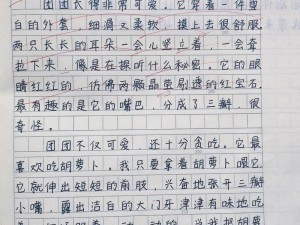 团团长得非常可爱。它穿着一件雪
白的外套，细滑又柔软，摸上去很舒服
两只长长的耳朵一会心竖立着，一会耷
拉下来，像是在探听什么秘密。它的眼
睛红红的，仿佛两颗晶莹剔透的红宝石，
最有趣的是它的嘴巴，分成了三瓣，很
奇怪。
团团不仅可爱，还十分贪吃。它最
喜欢吃胡萝卜。我只要拿着胡萝卜喂它
它就伸出短短的前肢，兴奋地张开三瓣
小嘴，露出洁白的大门牙津津有味地吃
动一动的 当我把胡萝